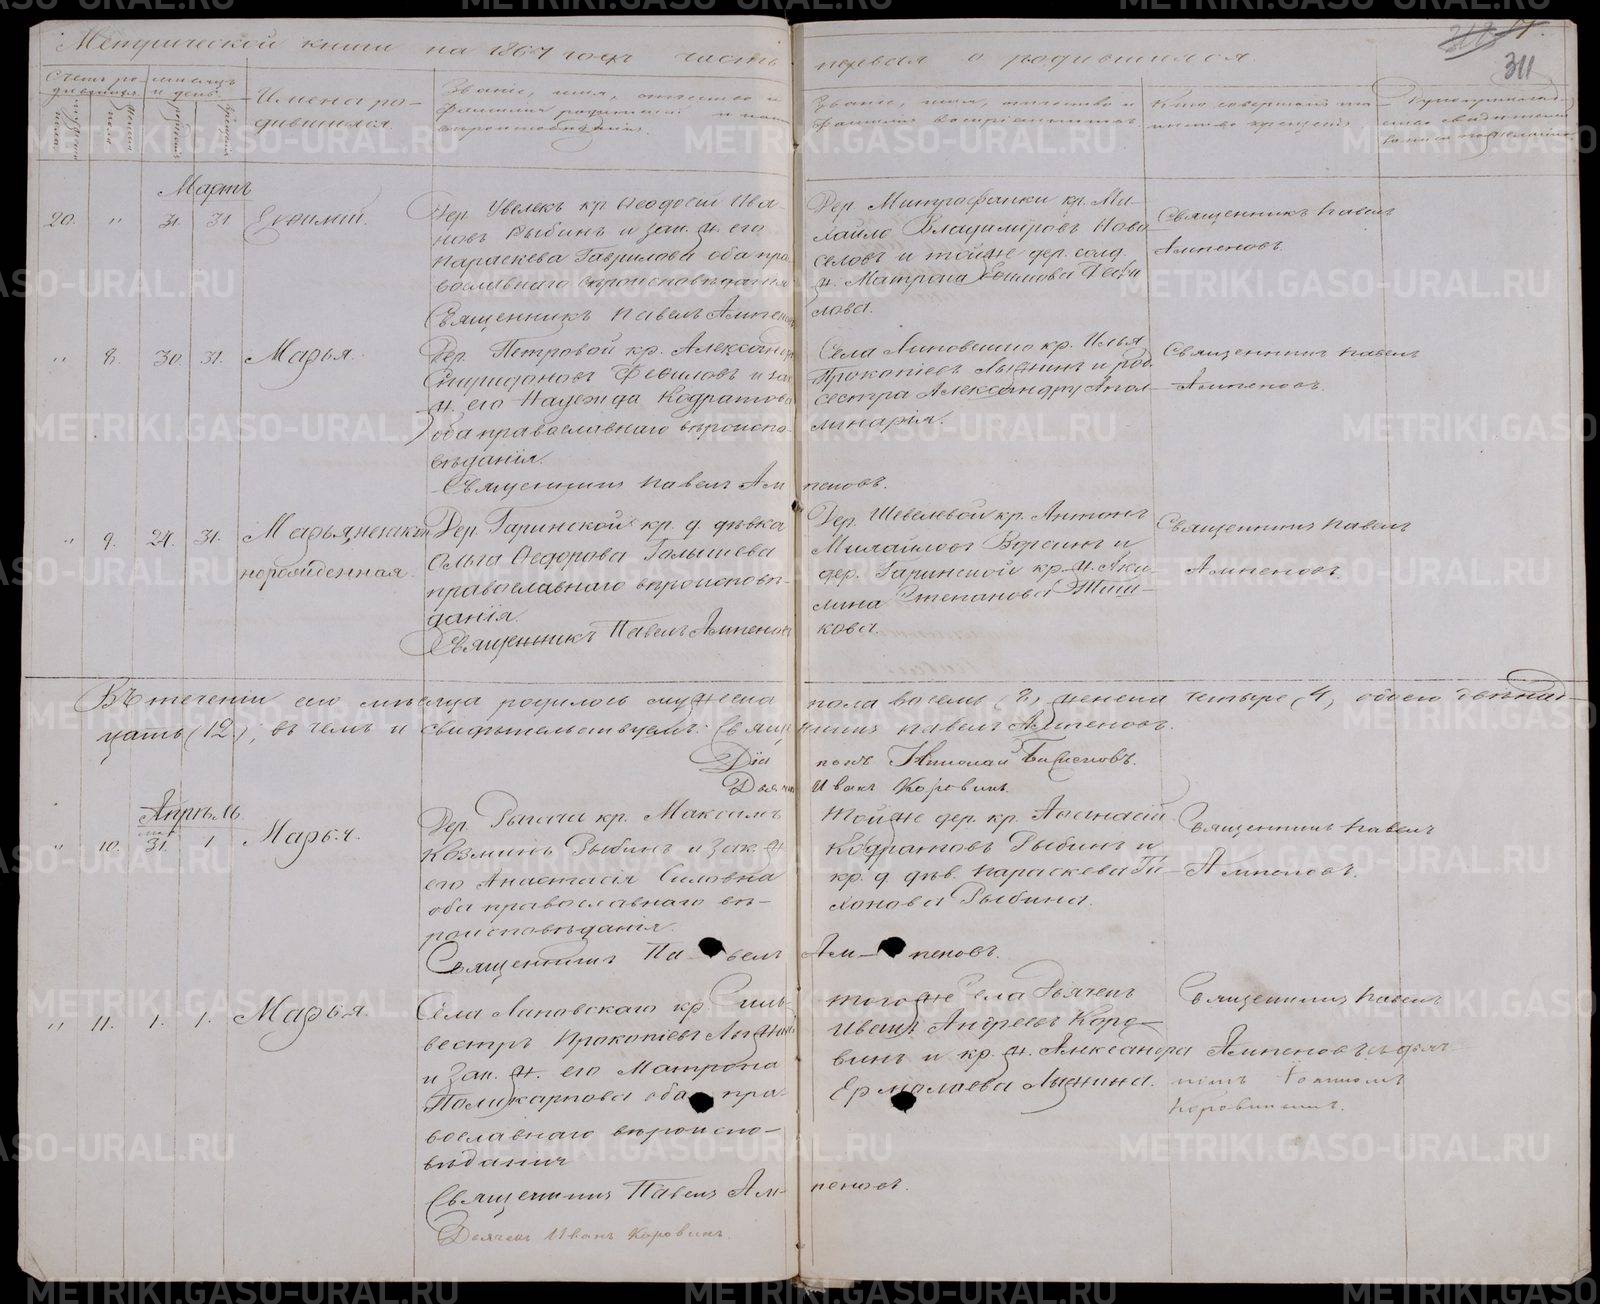 Метрической книги на 1867 годъ часть первая о родившихся.
311
Счетъ родившихся
мѣсяцъ и день
Имена родившихся.
Званіе, имя, отчество и фамилія родителей и какого вѣроисповѣданія.
Званіе, имя, отчество и фамилія воспріемниковъ
Кто совершалъ таинство крещенія
Мартъ
20. " 31 31 Евфимій.
Дер. Увелкъ кр. Ѳеодосій Ива-
новъ Рыбинъ и зак. ж. его
Параскева Гаврилова оба пра
вославнаго вѣроисповѣданія
Священникъ Павелъ Ампеновъ
Дер. Митрофанки кр. Ми-
хайло Владиміровъ Ново
селовъ и тойже дер. солд.
ж. Матрона
лова.
Священникъ Павелъ
Ампеновъ.
" 8. 30. 31. Марья.
Дер. Петровой кр. Александръ
Спиридоновъ Ѳефиловъ и зак
ж. его Надежда Кодратова
оба православнаго вѣроиспо-
вѣданія.
Священникъ Павелъ Ам пеновъ.
Села Липовскаго кр. Илья
Прокопіевъ и род.
сестра Александру Апол-
линарія.
Священникъ Павелъ
Ампеновъ.
" 9. 24. 31. Марья, незакон
норожденная.
Дер. Гаринской кр. д. дѣвка
Ольга Ѳедорова Голышева
православнаго вѣроисповѣ-
данія.
Священникъ Павелъ Ампеновъ
Дер. Шевелевой кр. Антонъ
Михайловъ Ворсинъ и
дер. Гаринской кр. ж. Аки-
лина Степанова
кова.
Священникъ Павелъ
Ампеновъ.
Въ теченіи сего мѣсяца родилось мужеска пола восемь (8), женска четыре (4), обоего двѣнад-
цать (12); въ чемъ и свидѣтельствуемъ: Священникъ Павелъ Ампеновъ.
Діа конъ Николай
Дьячекъ Иванъ Коровинъ.
Апрѣль
" 10. 31. 1. Марья.
Дер. кр. Максимъ
Козминъ Рыбинъ и зак. ж.
его Анастасія Силовна
оба православнаго вѣ-
роисповѣданія.
Священникъ Павелъ Ам- пеновъ.
Тойже дер. кр. Аѳанасій
Кодратовъ Рыбинъ и
кр. д. дѣв. Параскева Ти-
хонова Рыбина.
Священникъ Павелъ
Ампеновъ.
" 11. 1. 1. Марья.
Села Липовскаго кр. Силь-
вестръ Прокопіевъ
и зак. ж. его Матрона
Поликарпова оба пра-
вославнаго вѣроиспо-
вѣданія
Священникъ Павелъ Ам- пеновъ.
Дьячекъ Иванъ Коровинъ.
Тогоже села Дьячекъ
Иванъ Андреевъ Коро-
винъ и кр. ж. Александра
Ермолаева
Священникъ Павелъ
Ампеновъ съ дьяч
комъ Іоанномъ
Коровинымъ.
METRIKI.GASO-URAL.RU